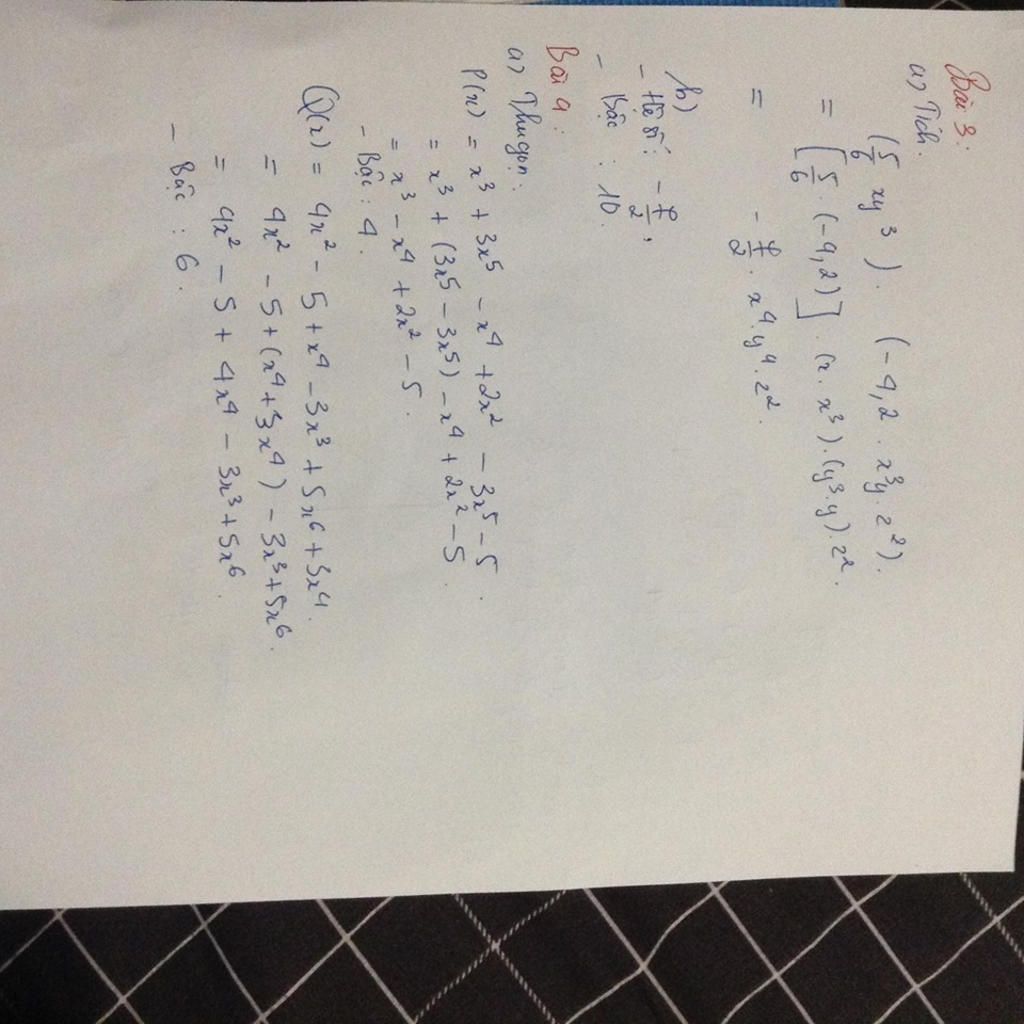 Bài 3:
a) Tích.
(5/6 xy³). (-4,2 . x³y.z²).
= [5/6 . (-4,2)] . (x. x³).(y³.y).z².
= -7/2 . x⁴.y⁴.z².
b)
- Hệ số: -7/2,
- Bậc : 10.
Bài 4:
a) Thu gọn:
P(x) = x³ + 3x⁵ - x⁴ + 2x² - 3x⁵ - 5.
= x³ + (3x⁵ - 3x⁵) - x⁴ + 2x² - 5
= x³ - x⁴ + 2x² - 5.
- Bậc : 4.
Q(x) = 4x² - 5 + x⁴ - 3x³ + 5x⁶ + 3x⁴.
= 4x² - 5 + (x⁴ + 3x⁴) - 3x³ + 5x⁶.
= 4x² - 5 + 4x⁴ - 3x³ + 5x⁶.
- Bậc : 6.